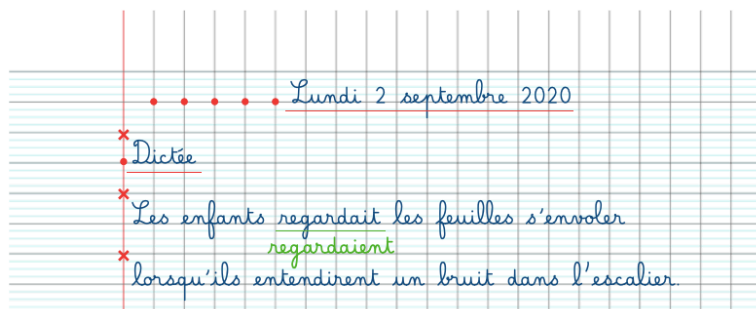 Lundi 2 septembre 2020
Dictée
Les enfants regardait les feuilles s'envoler
regardaient
lorsqu'ils entendirent un bruit dans l'escalier.